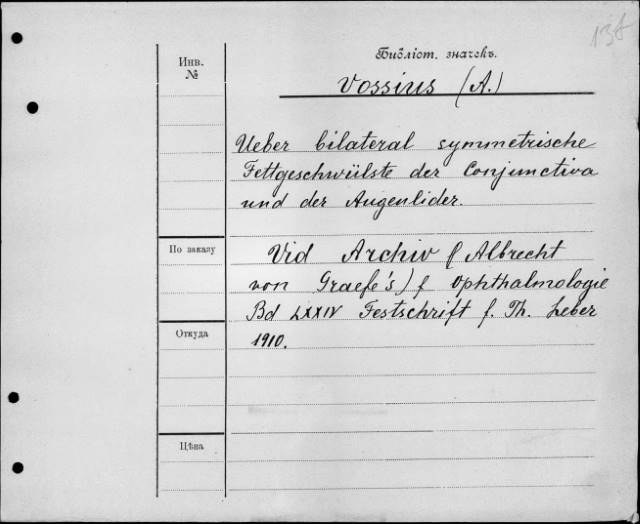 138
Библіот. значекъ.
Инв.
№
Vossius (A.)
Ueber bilateral symmetrische
Fettgeschwülste der Conjunctiva
und der Augenlider.
По заказу
Vid Archiv ( Albrecht
von Graefe's) f Ophthalmologie
Bd LXXIV Festschrift f. Th. Leber
Откуда
1910.
Цѣна